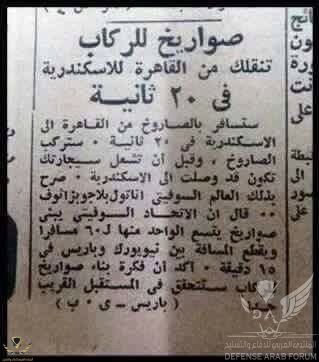 صواريخ للركاب
تنقلك من القاهرة للاسكندرية
فى ٢٠ ثانية
ستسافر بالصاروخ من القاهرة الى
الاسكندرية فى ٢٠ ثانية • ستركب
الصاروخ ، وقبل أن تشعل سيجارتك
تكون قد وصلت الى الاسكندرية • صرح
بذلك العالم السوفيتى اناتول بلاجونراتوف
•• قال ان الاتحاد السوفيتى يبنى
صواريخ يتسع الواحد منها لـ ٦٠ مسافرا
ويقطع المسافة بين نيويورك وباريس فى
٤٥ دقيقة • أكد أن فكرة بناء صواريخ
ركاب ستتحقق فى المستقبل القريب
جدا ( باريس – ى • ب )
المنتدى العربي للدفاع والتسليح
DEFENSE ARAB FORUM